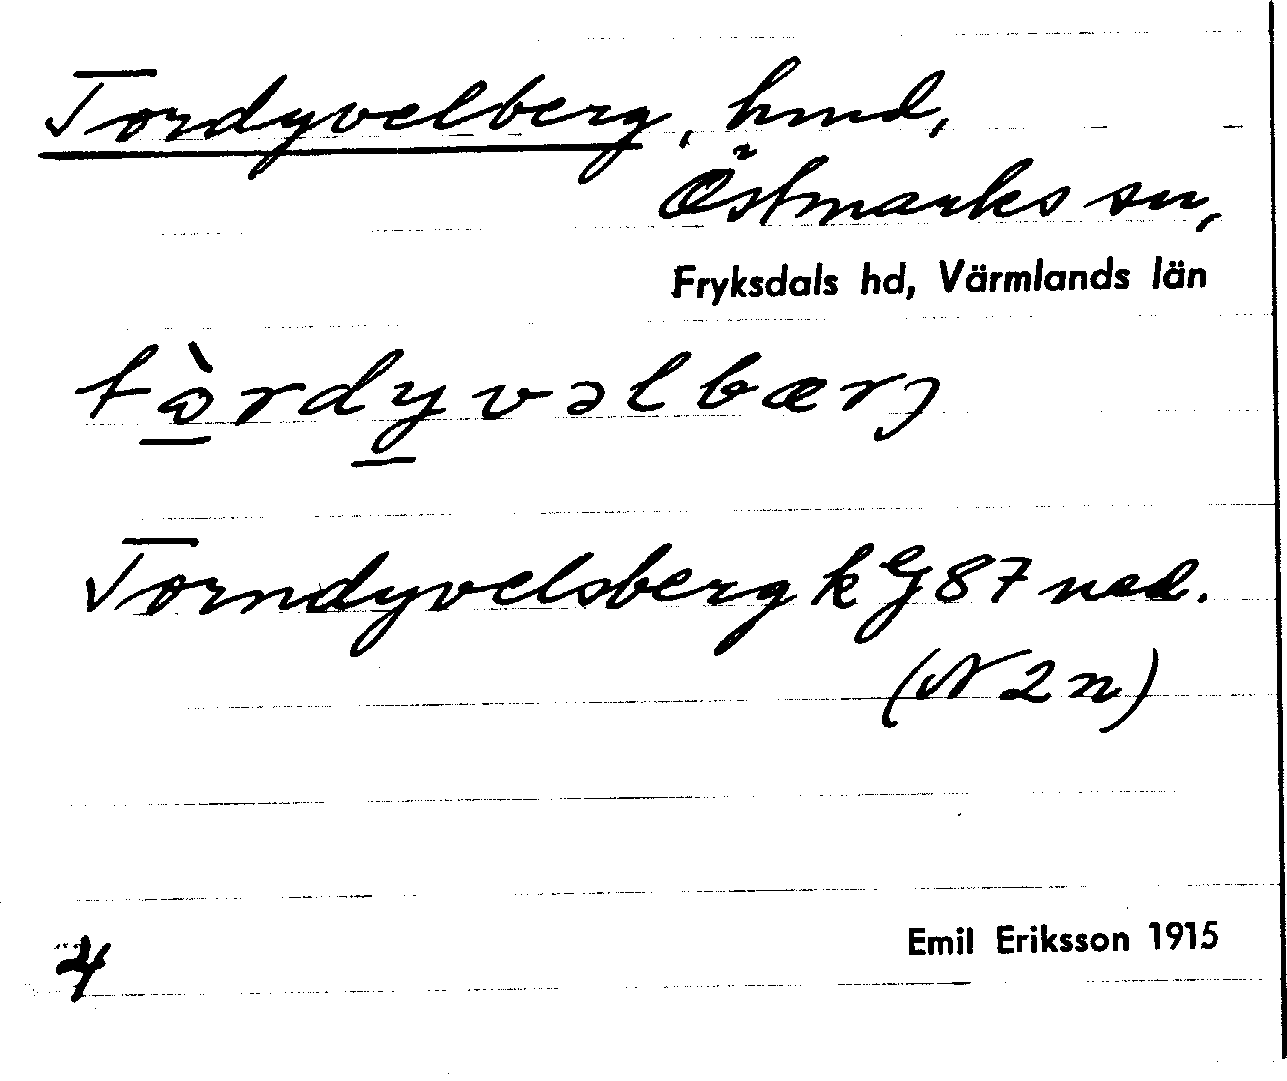 Tordyvelberg, hmd,
Östmarks sn,
Fryksdals hd, Värmlands län
tò̱rdy̱vəlbærj
Torndyvelsberg k G 87 ned.
(N 2 n)
4
Emil Eriksson 1915